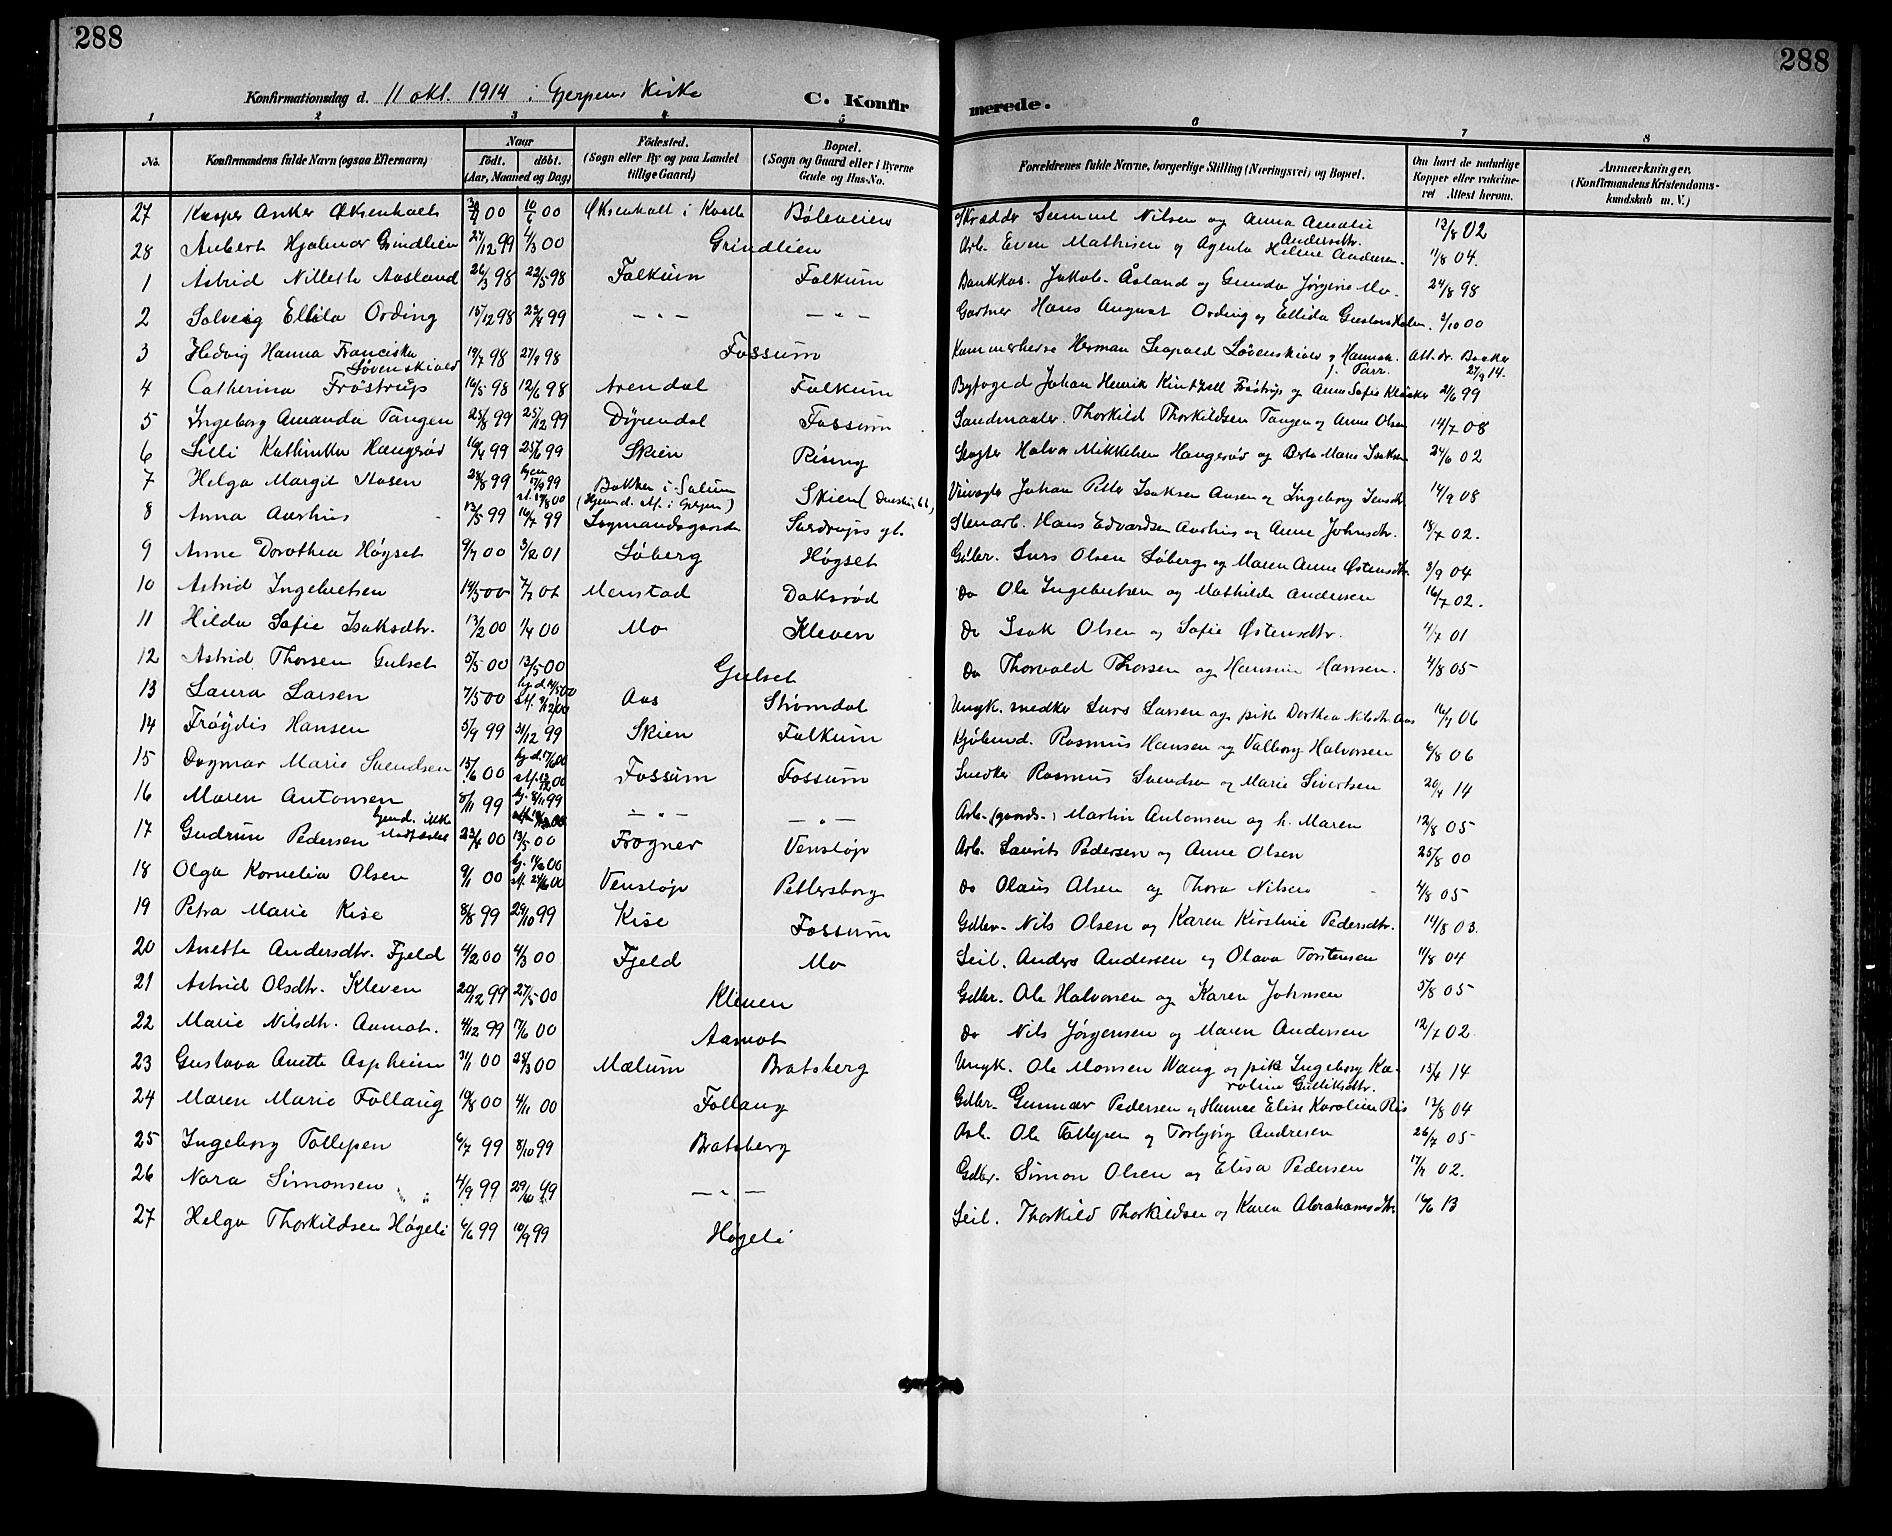 288
288
Konfirmationsdag d. 11 okt. 1914 i Gjerpens Kirke
C. Konfirmerede.
1 2 3 4 5 6 7 8
No. Konfirmandens fulde Navn (ogsaa Efternavn) Naar født. døbt. (Aar, Maaned og Dag) Fødested. (Sogn eller By og paa Landet tillige Gaard) Bopæl. (Sogn og Gaard eller i Byerne Gade og Hus-No. Forældrenes fulde Navne, borgerlige Stilling (Næringsvei) og Bopæl. Om havt de naturlige Kopper eller vakcineret Attest herom. Anmærkninger. (Konfirmandens Kristendomskundskab m. V.)
27 Kasper Anker Øksenholt 00 00 Øksenholt i Bøleveien Skrædder Samuel Nilsen og Anna Amalie Andersdtr. 13/8 02
28 Anbert Hjalmar Grindlien 27/12 99 4/3 00 Grindlien Arb. Even Mathisen og Agenta Helene Andersen. 1/8 04.
1 Astrid Nillette Aasland 26/3 98 22/5 98 Falkum Falkum Bankkas. Jakob Åsland og Gunda Jørgine Mo. 24/8 98
2 Solveig Ellida Ording 15/12 98 23/4 99 — " — — " — Gartner Hans August Ording og Ellida 2/10 00
3 Hedvig Hanna Franciska Løvenskiold 19/7 98 27/9 98 Fossum Kammerherre Herman Leopold Løvenskiold og Hannah f. Parr. Att. dr. Baaker 27/9 14.
4 Catherina Frøstrup 16/5 98 12/6 98 Arendal Falkum Byfoged Johan Henrik Frøstrup og Anna Sofie Kløcker 21/6 99
5 Ingeborg Amanda Tangen 25/8 99 25/12 99 Dyrendal Fossum Sandmaaler Thorkild Thorkildsen Tangen og Anne Olsen 14/7 08
6 Lilli Kathinka Haugerød 16/4 99 25/6 99 Skien Rising Slagter Halvor Mikkelsen Haugerød og Berta Marie Isaksen 24/6 02
7 Helga Margit Aasen 28/8 99 hjem 17/9 99 st. 17/8 00 Bakken i Solum (Hjemd. st. i Gjerpen) Skien Johan Petter Isaksen Aasen og Ingeborg Jensdtr. 14/9 08
8 Anna Aarhus 13/5 99 16/7 99 Lagmandsgaarden Surdrups gt. Stenarb. Hans Edvardsen Aarhus og Anne Johnsdtr. 18/7 02.
9 Anne Dorothea Høgset 9/7 00 3/2 01 Løberg Høgset Gdbr. Lars Olsen Løberg og Maren Anne Østensdtr. 3/9 04
10 Astrid Ingebretsen 14/5 00 7/7 01 Menstad Daksrød do Ole Ingebretsen og Mathilde Andersen 16/7 02.
11 Hilda Sofie Isaksdtr. 13/2 00 1/4 00 Mo Kleven do Isak Olsen og Sofie Østensdtr. 4/7 01
12 Astrid Thorsen Gulset 5/5 00 13/5 00 Gulset do Thorvald Thorsen og Hansine Hansen. 4/8 05
13 Laura Larsen 7/5 00 hj. d. 14/5 00 st. 9/12 00 Aas Strømdal Ungk. snedker Lars Larsen og pike Dorthea Nilsdtr. Aas 16/7 06
14 Frøydis Hansen 5/9 99 31/12 99 Skien Falkum Kjøbmd. Rasmus Hansen og Valborg Halvorsen 6/8 06
15 Dagmar Marie Svendsen 15/6 00 hj. d. 17/6 00 Fossum Fossum Snedker Rasmus Svendsen og Marie Sivertsen 20/4 14
16 Maren Antonsen 8/11 99 hj. 8/11 99 — " — — " — Arb. (gaards-) Martin Antonsen og h. Maren 12/8 05
17 Gudrun Pedersen 23/4 00 13/5 00 Frogner Venstøp Arb. Laurits Pedersen og Anne Olsen 25/8 00
18 Olga Kornelia Olsen 9/1 00 Venstøp Pettersborg do Olaus Olsen og Thora Nilsen 4/8 05
19 Petra Marie Kise 8/8 99 29/10 99 Kise Fossum Gdbr. Nils Olsen og Karen Kirstine Pedersdtr. 14/8 03.
20 Anette Andersdtr. Fjeld 4/2 00 4/3 00 Fjeld Mo Leil. Anders Andersen og Olava Torstensen 11/8 04
21 Astrid Olsdtr. Kleven 20/12 99 27/5 00 Kleven Gdbr. Ole Halvorsen og Karen Johnsen 5/8 05
22 Marie Nilsdtr. Aamot. 4/12 99 17/6 00 Aamot do Nils Jørgensen og Maren Andersen 12/7 02
23 Gustava Anette Aspheim 31/1 00 25/3 00 Mælum Bratsberg Ungk. Ole Monsen Waag og pike Ingeborg Karoline Gulliksdtr. 15/4 14
24 Maren Marie Follaug 19/8 00 4/11 00 Follaug Gdbr. Gunnar Pedersen og Hanna Elise Karoline Riis 12/8 04
25 Ingeborg Tollefsen 6/7 99 8/10 99 Bratsberg Arb. Ole Tollefsen og Torbjørg Andresen 26/7 05
26 Nora Simonsen 4/9 99 29/10 99 — " — Gdbr. Simon Olsen og Elisa Pedersen 17/7 02.
27 Helga Thorkildsen Høgeli 6/6 99 10/9 99 Høgeli Leil. Thorkild Thorkildsen og Karen Abrahamsdtr. 16/6 13